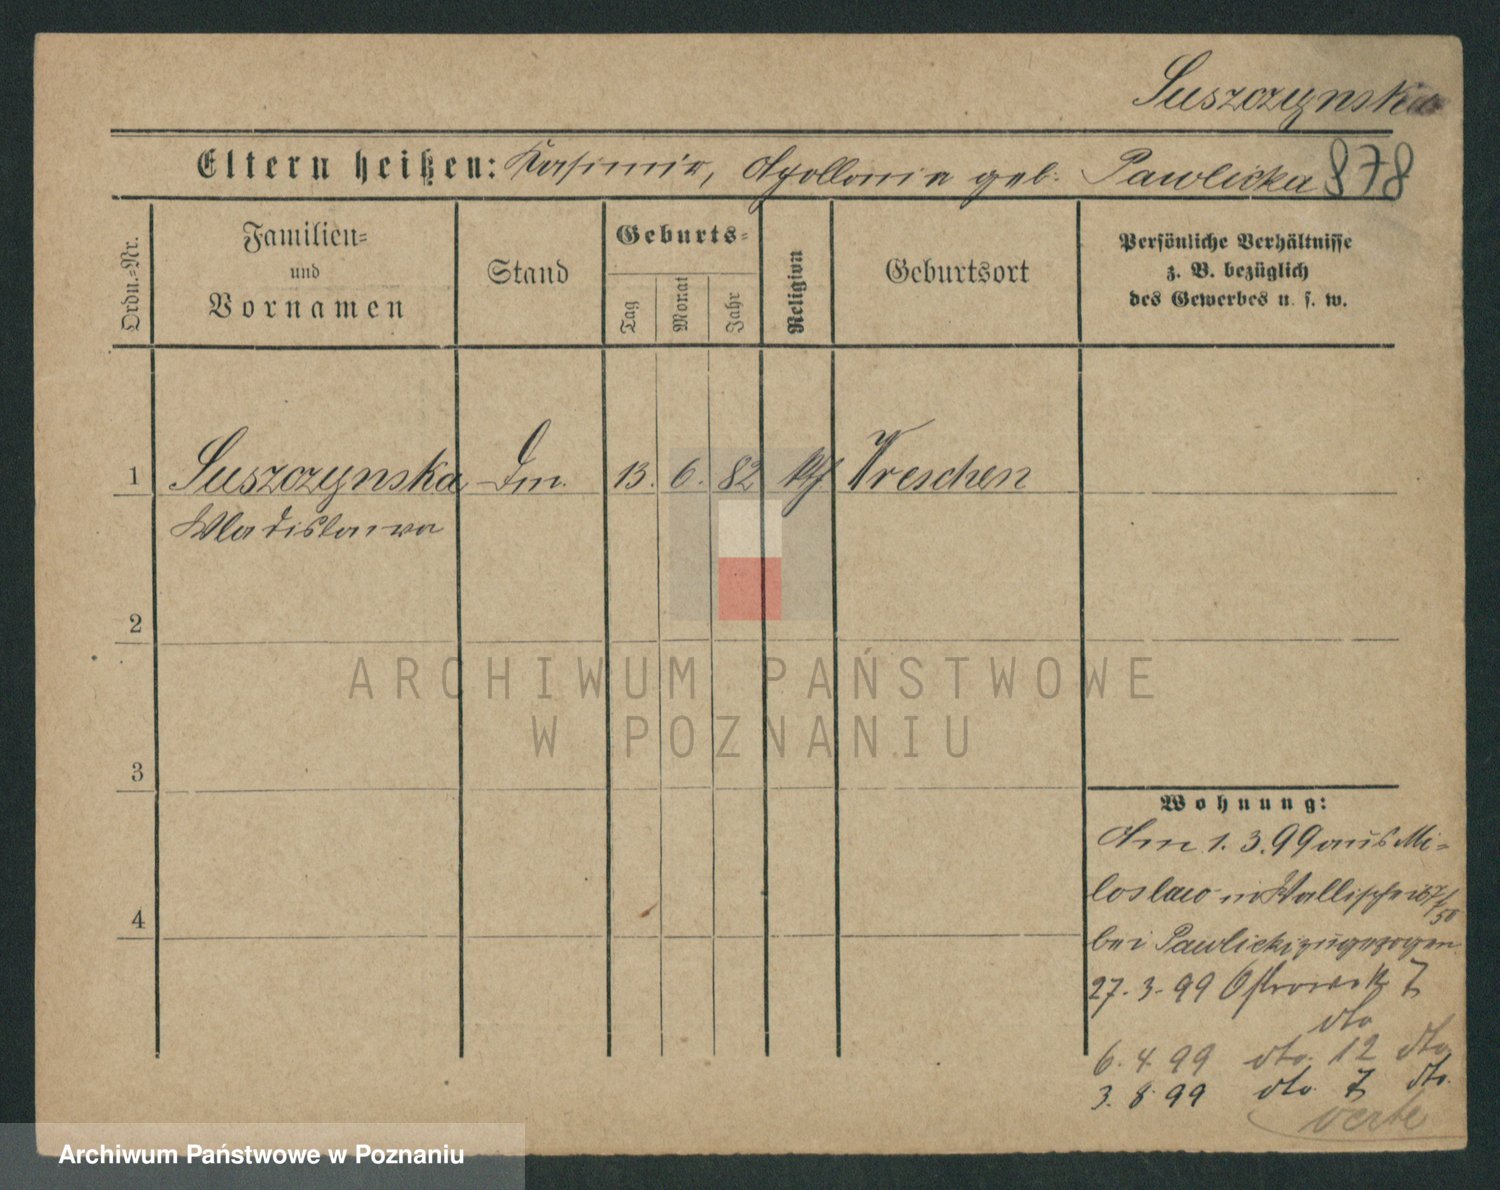 Suszczynska
Eltern heißen: Kasimir, Apollonia geb. Pawlicka 878
Ordn.-Nr.
Familien-
und
Vornamen
Stand
Geburts-
Tag
Monat
Jahr
Religion
Geburtsort
Persönliche Verhältnisse
z. B. bezüglich
des Gewerbes u. s. w.
1 Suszczynska 13. 6. 82 Wreschen
Wladislawa
2
3
4
ARCHIWUM PAŃSTWOWE
W POZNANIU
Wohnung:
Am 1. 3. 99 aus Mi-
loslaw in Wallischei
bei Pawlicki zugezogen
27. 3. 99 Ostrowek 7
dto
6. 4. 99 dto. 12 dto
3. 8. 99 dto 7 dto.
verte
Archiwum Państwowe w Poznaniu